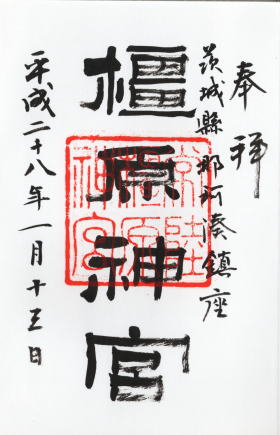 奉拝
茨城縣那珂湊鎮座
橿原神宮
平成二十八年一月十三日